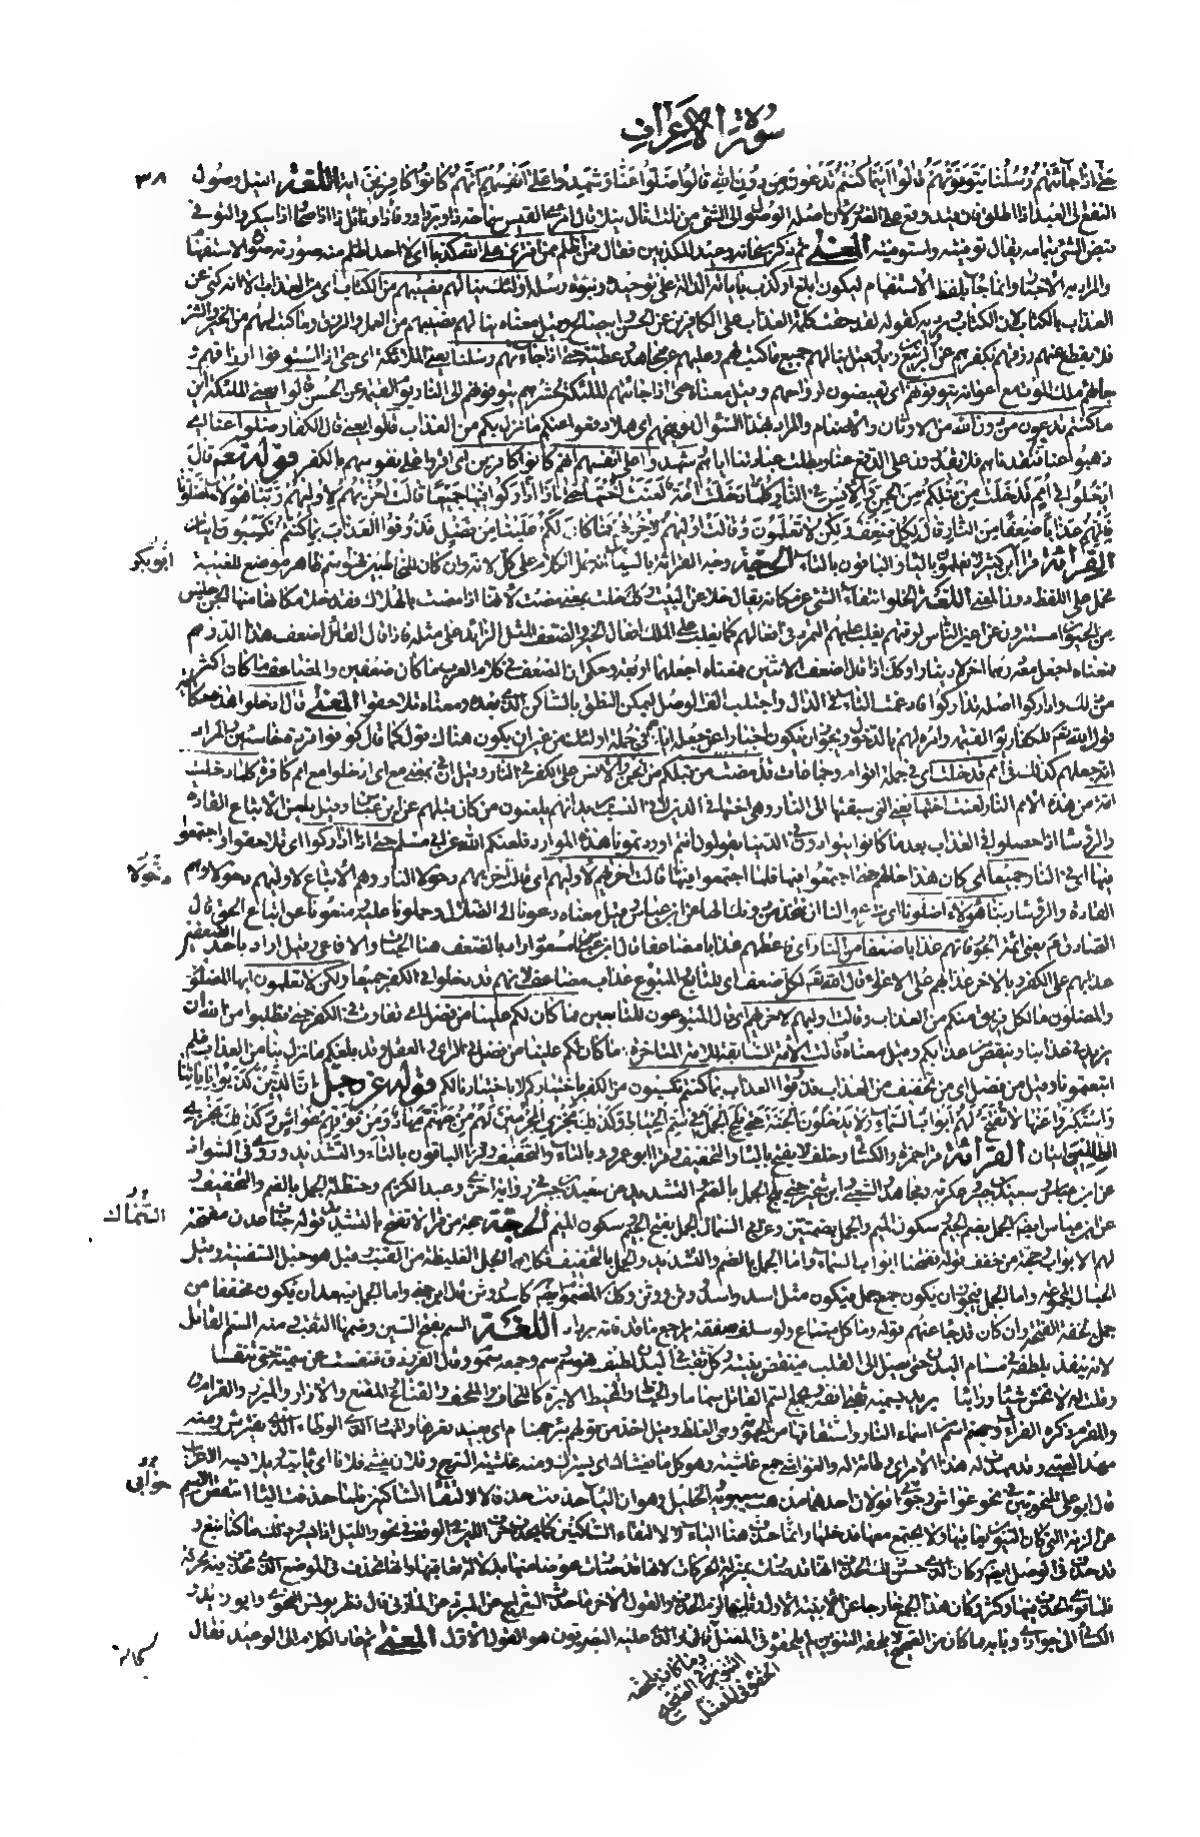 سورة الاعراف
حتى اذا جاءتهم رسلنا يتوفونهم قالوا اينما كنتم تدعون من دون الله قالوا ضلوا عنا وشهدوا على انفسهم انهم كانوا كافرين اية اللغة النيل وصول
النفع الى العبد اذا اطلق فان قيد وقع على الضرر لان اصله الوصول الى الشيء من نلت انال نيلا قال امرء القيس سماحة ذا وبر ذا ووفاء ذا ونائل ذا اذا صحا واذا سكر والتوفي
قبض الشيء بتمامه يقال توفيته واستوفيته المعنى ثم ذكر سبحانه وعيد المكذبين فقال فمن اظلم ممن افترى على الله كذبا اي لا احد اظلم منه صورته صورة الاستفهام
والمراد به الاخبار وانما جاء بلفظ الاستفهام ليكون ابلغ او كذب باياته الدالة على توحيده ونبوة رسله اولئك ينالهم نصيبهم من الكتاب اي من العذاب الا انه كنى عن
العذاب بالكتاب لان الكتاب ورد به كقوله لقد حقت كلمة العذاب على الكافرين عن الحسن وابي صالح وقيل معناه ينالهم نصيبهم من العمل والرزق وما كتب لهم من الخير والشر
فلا يقطع عنهم رزقهم بكفرهم عن الربيع وابن زيد وقيل ينالهم جميع ما كتب لهم وعليهم عن مجاهد وعطية حتى اذا جاءتهم رسلنا يعني الملائكة اي حتى اذا استوفوا ارزاقهم و
جاءهم ملك الموت مع اعوانه يتوفونهم اي يقبضون ارواحهم وقيل معناه حتى اذا جاءتهم الملائكة لحشرهم يتوفونهم الى النار يوم القيمة عن الحسن قالوا يعني الملئكة اين
ما كنتم تدعون من دون الله من الاوثان والاصنام والمراد بهذا السؤال توبيخهم اي هلا دفعوا عنكم ما نزل بكم من العذاب قالوا يعني قال الكفار ضلوا عنا اي
ذهبوا عنا وافتقدناهم فلا يقدرون على الدفع عنا وبطلت عبادتنا اياهم وشهدوا على انفسهم انهم كانوا كافرين اي اقروا على نفوسهم بالكفر قوله تعم قال
ادخلوا في امم قد خلت من قبلكم من الجن والانس في النار كلما دخلت امة لعنت اختها حتى اذا اداركوا فيها جميعا قالت اخريهم لاوليهم ربنا هؤلاء اضلونا
فاتهم عذابا ضعفا من النار قال لكل ضعف ولكن لا تعلمون وقالت اوليهم لاخريهم فما كان لكم علينا من فضل فذوقوا العذاب بما كنتم تكسبون ايتان
القراءة قرأ ابو بكر لا يعلمون بالياء والباقون بالتاء الحجة وجه القراءة بالياء انه حمل الكلام على كل لانه وان كان للمخاطبين فهو اسم ظاهر موضوع للغيبة
فحمل على اللفظ دون المعنى اللغة الخلو انتفاء الشيء عن مكانه يقال خلا عن البيت وكذلك خلت بمعنى مضت لانها اذا مضت بالهلاك فقد خلا مكانها منها الجن جنس
من الحيوان مستترون عن اعين الناس لرقتهم يغلب عليهم التمرد في افعالهم كما يغلب على الملك افعال الخير والضعف المثل الزائد على مثله فاذا قال القائل اضعف هذا الدرهم
فمعناه اجعل معه درهما اخر لا دينارا وكذلك اذا قال اضعف الاثنين فمعناه اجعلهما اربعة وحكي ان الضعف في كلام العرب ما كان ضعفين والمضاعف ما كان اكثر
من ذلك واداركوا اصله تداركوا فادغمت التاء في الدال واجتلب الف الوصل ليمكن النطق بالساكن الذي بعده ومعناه تلاحقوا المعنى قال ادخلوا هذا حكاية
قول الله تعم للكفار يوم القيمة وامره لهم بالدخول ويجوز ان يكون اخبارا عن جعله اياهم في جملة اولئك من غير ان يكون هناك قول كما قال كونوا قردة خاسئين والمراد
انه جعلهم كذلك في امم قد خلت اي في جملة اقوام وجماعات قد مضت من قبلكم من الجن والانس على الكفر في النار وقيل ان في بمعنى مع اي ادخلوا مع امم كافرة كلما دخلت
امة من هذه الامم النار لعنت اختها يعني التي سبقتها الى النار وهي اختها في الدين لا في النسب يريد انهم يلعنون من كان قبلهم عن ابن عباس وقيل يلعن الاتباع القادة
والرؤسا اذا حصلوا في العذاب بعد ما كانوا يتوادون في الدنيا يقولون انتم اوردتمونا هذه الموارد فلعنكم الله عن ابي مسلم حتى اذا اداركوا اي تلاحقوا واجتمعوا
فيها اي في النار جميعا اي كان هذا حالهم حتى اجتمعوا فيها فلما اجتمعوا فيها قالت اخريهم لاوليهم اي قالت اخريهم دخولا النار وهم الاتباع لاوليهم دخولا وهم
القادة والرؤساء ربنا هؤلاء اضلونا اي قال ابن عباس معناه دعونا الى الضلال وحملونا عليه ومنعونا عن اتباع الحق قال
الصادق عم يعني ائمة الجور فاتهم عذابا ضعفا من النار اي فاعطهم عذابا مضاعفا قال ابن مسعود اراد بالضعف هنا الحيات والافاعي وقيل اراد باحد الضعفين
عذابهم على الكفر وبالاخر عذابهم على الاغراء قال الله تعم لكل ضعف اي للتابع والمتبوع عذاب مضاعف لانهم قد دخلوا في الكفر جميعا ولكن لا تعلمون ايها المضلون
والمضلون ما لكل فريق منكم من العذاب وقالت اوليهم لاخريهم اي قال المتبوعون للتابعين فما كان لكم علينا من فضل اي تفاوت في الكفر حتى تطلبوا من الله ان
يزيد في عذابنا وينقص من عذابكم وقيل معناه قالت الامة السابقة للامة المتاخرة ما كان لكم علينا من فضل في الراي والعقل وقد بلغكم ما نزل بنا من العذاب فلم
اتبعتمونا وقيل من فضل اي من تخفيف من العذاب فذوقوا العذاب بما كنتم تكسبون من الكفر باختياركم لا باختيارنا لكم قوله عز وجل ان الذين كذبوا باياتنا
واستكبروا عنها لا تفتح لهم ابواب السماء ولا يدخلون الجنة حتى يلج الجمل في سم الخياط وكذلك نجزي المجرمين لهم من جهنم مهاد ومن فوقهم غواش وكذلك نجزي
الظالمين ايتان القراءة قرأ حمزة والكسائي وخلف لا يفتح بالياء والتخفيف وقرأ ابو عمرو بالتاء والتخفيف وقرأ الباقون بالتاء والتشديد وروي في الشواذ
عن ابن عباس وسعيد بن جبير وعكرمة ومجاهد والشعبي وابن الشخير حتى يلج الجمل بالضم والتشديد وعن سعيد بن جبير في رواية اخرى وعبد الكريم وحنظلة الجمل بالضم والتخفيف و
عن ابن عباس ايضا الجمل بضم الجيم وسكون الميم والجمل بضمتين وعن ابي السمال الجمل بفتح الجيم وسكون الميم الحجة حجة من قرأ لا تفتح بالتشديد قوله جنات عدن مفتحة
لهم الابواب وحجة من خفف قوله ففتحنا ابواب السماء واما الجمل بالضم والتشديد والجمل بالتخفيف فكلاهما الحبل الغليظ من القنب وقيل هو حبل السفينة وقيل
الحبال المجموعة واما الجمل فيجوز ان يكون جمع جمل فيكون مثل اسد واسد ووثن ووثن وكذلك المضموم ايضا كاسد ووثن قال ابن جني واما الجمل فيبعد ان يكون مخففا من
جمل لخفة الفتحة وان كان قد جاء عنهم قوله وما كل مبتاع ولو سلف صفقة براجع ما قد فاته برداد اللغة السم بفتح السين وضمها الثقب ومنه السم القاتل
لانه ينفذ بلطفه في مسام البدن حتى يصل الى القلب فينقض بنيته وكل ثقب في البدن لطيف فهو سم وجمعه سموم وقال الفرزدق فنفست عن سميه حتى تنفسا
وقلت له لا تخش شيئا ورائيا يريد بسميه ثقبي انفه ويجمع السم القاتل سماما والخياط والمخيط الابرة كاللحاف والملحف والقناع والمقنع والازار والمئزر والقرام و
والمقرم ذكره الفراء وجهنم اسم من اسماء النار واشتقاقها من الجهومة وهي الغلظ وقيل اخذ من قولهم بئر جهنام اي بعيد قعرها والمهاد الوطاء الذي يفترش ومنه
مهد الصبي وقد مهدت له هذا الامر اي وطأته له والغواشي جمع غاشية وهو كل ما يغشاك اي يسترك ومنه غاشية السرج وفلان يغشى فلانا اي ياتيه ويلابسه الاعراب
قال ابو علي للنحويين في نحو غواش وجوار قولان احدهما مذهب سيبويه والخليل وهو ان الياء حذفت حذفا لا لالتقاء الساكنين فلما حذفت الياء انتقص الاسم
عن الزنة التي كان التنوين يعاقبها ولا يجتمع معها فدخلها وانما حذفت هذه الياء
قد حذفت في الوصل ايضا وكان الذي حسن ذلك الحذف
فلما قوي الحذف فيها وكثر وكان هذا الجمع خارجا عن الابنية الاول وثقيلا لزمه الحذف والقول الاخر ما حذف السراج عن المبرد عن المازني قال نظر يونس النحوي وابو زيد و
الكسائي الى جوار وبابه فما كان من الصحيح لا يلحقه التنوين لم يلحقوه في المعتل والذي عليه البصريون هو القول الاول المعنى ثم عاد الكلام الى الوعيد فقال
وما كان يلحقه
التنوين في الصحيح
الحقوه في المعتل
٣٨
ابو بكر
دخولا
السماك
جوابي